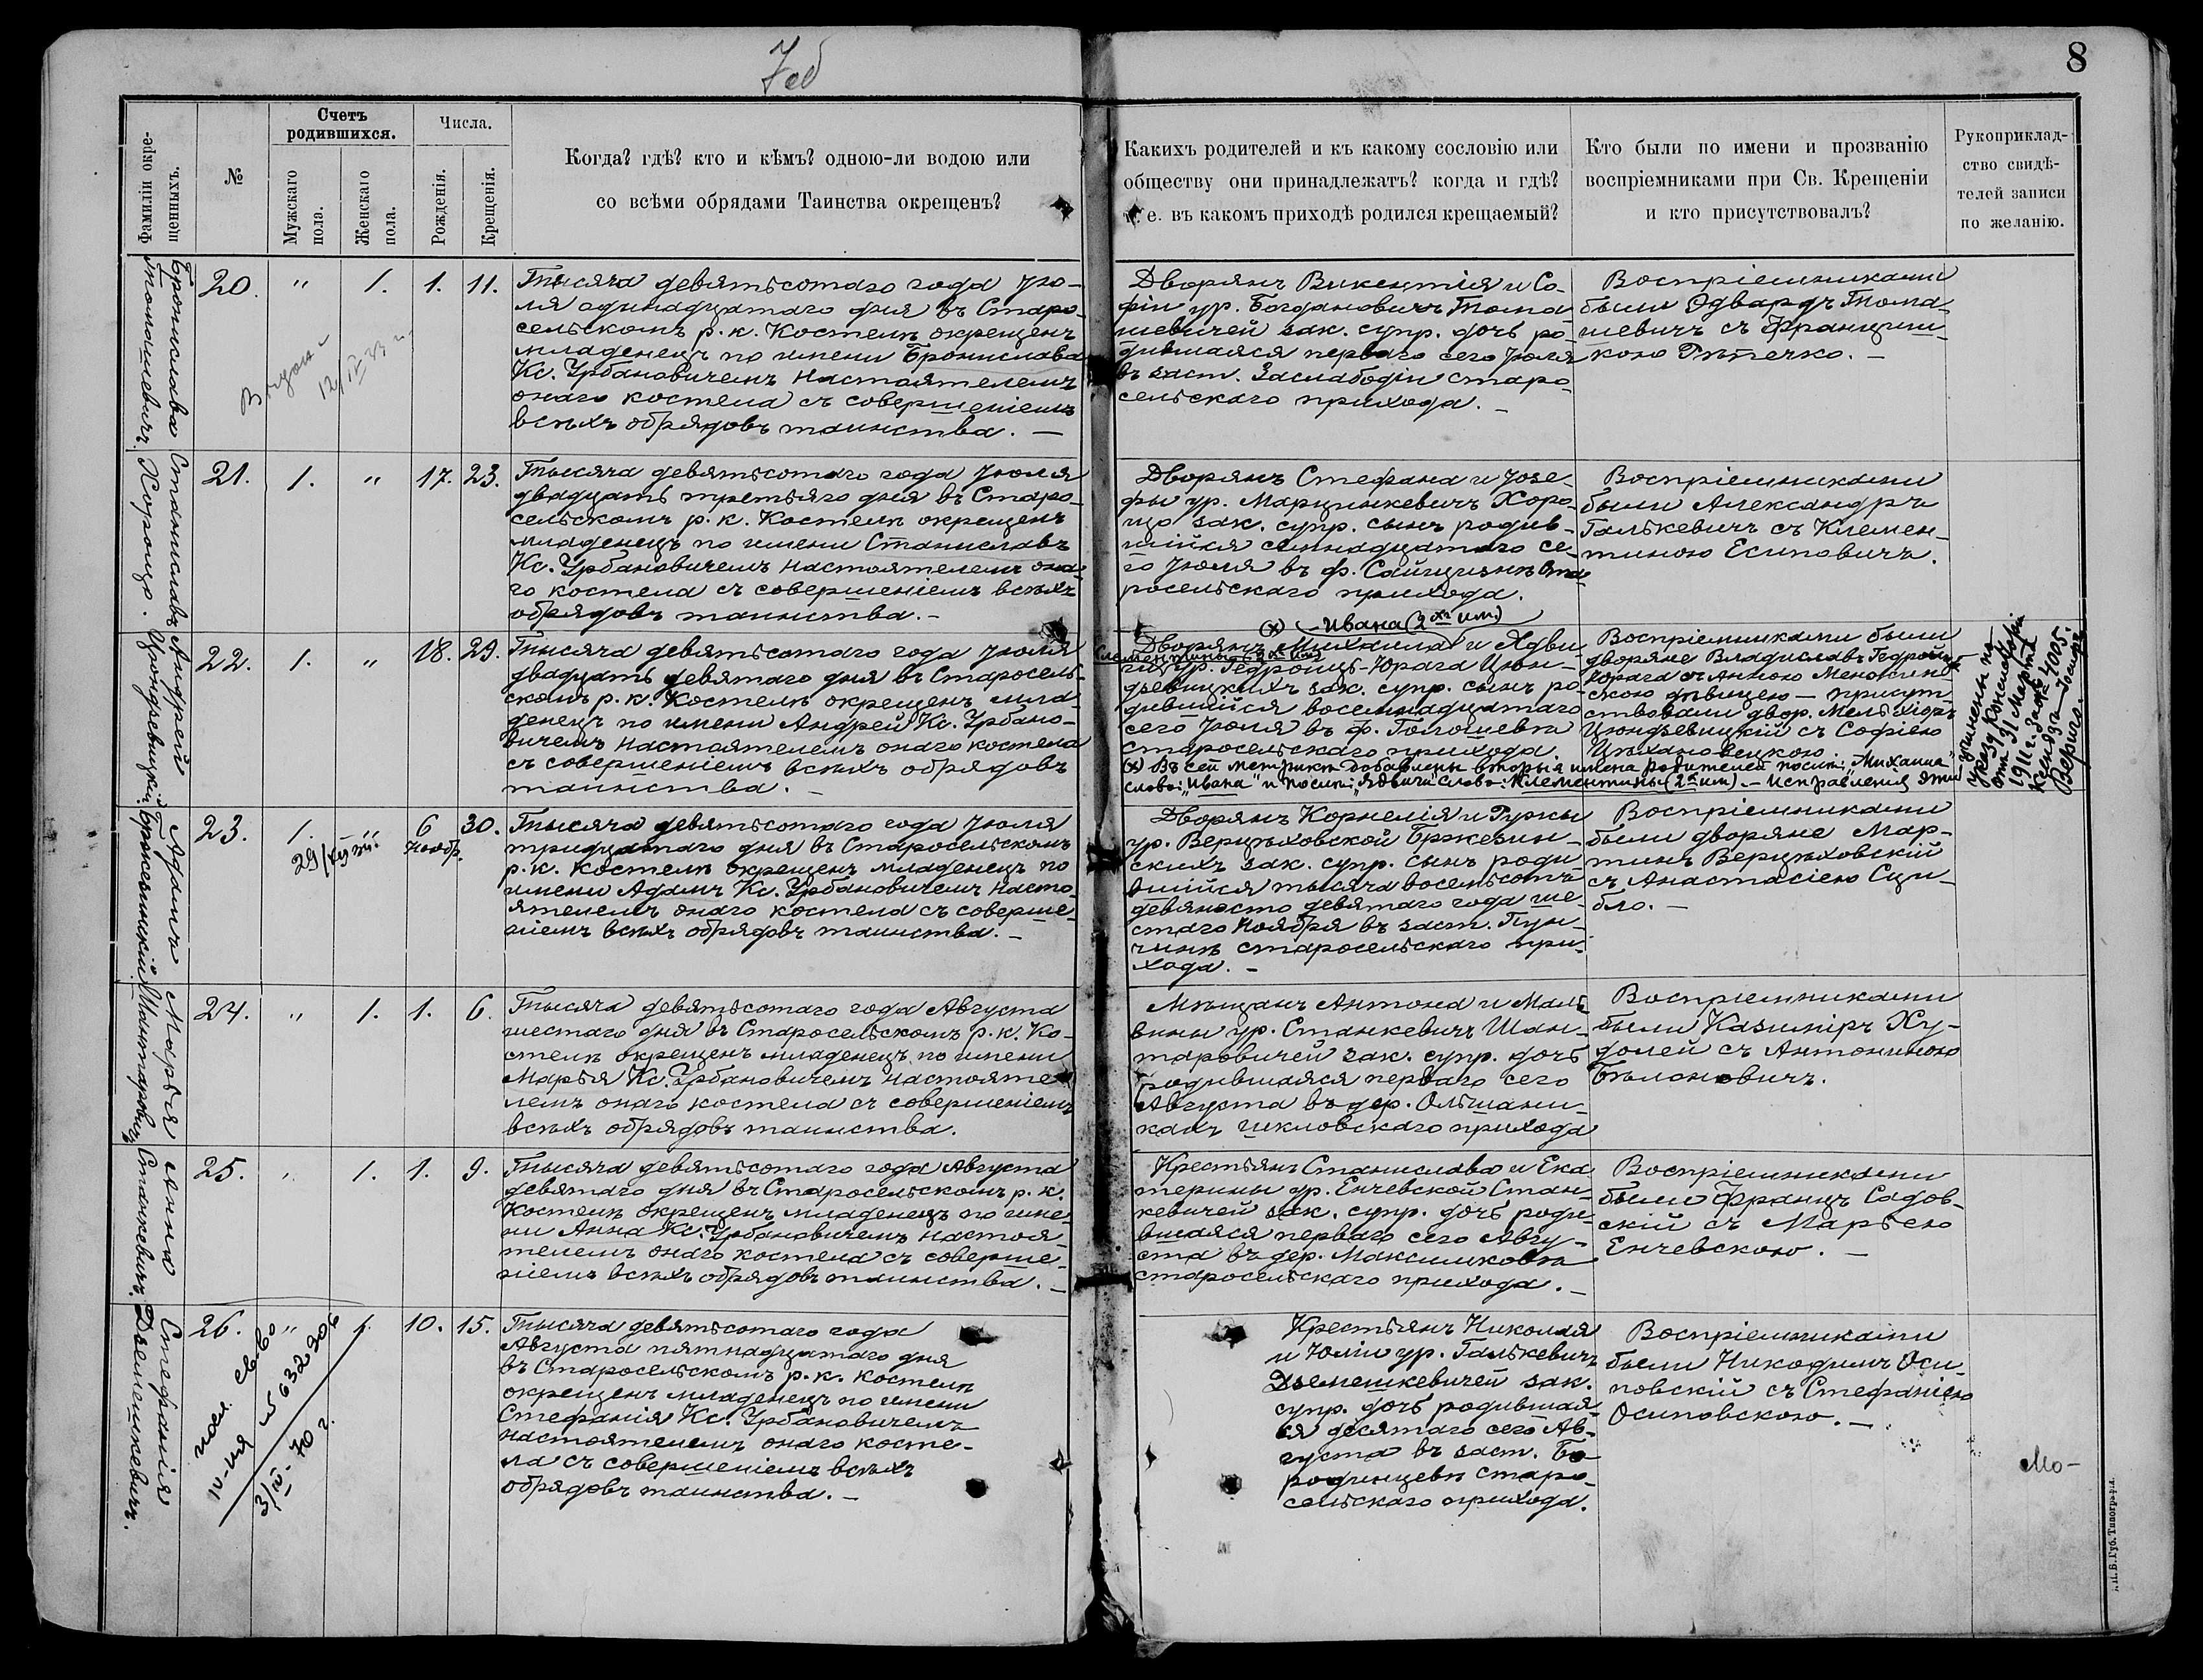 7об
8
Фамиліи окре-
щенныхъ.
№
Счетъ
родившихся.
Мужскаго
пола.
Женскаго
пола.
Числа.
Рожденія.
Крещенія.
Когда? гдѣ? кто и кѣмъ? одною-ли водою или
со всѣми обрядами Таинства окрещенъ?
Какихъ родителей и къ какому сословію или
обществу они принадлежатъ? когда и гдѣ?
т. е. въ какомъ приходѣ родился крещаемый?
Кто были по имени и прозванію
воспріемниками при Св. Крещеніи
и кто присутствовалъ?
Рукоприклад-
ство свидѣ-
телей записи
по желанію.
Бронислава
Томашевичъ.
20. " 1. 1. 11.
12/IV 33 г.
Тысяча девятьсотаго года Ію-
ля одинадцатаго дня въ Старо-
сельскомъ р. к. Костелѣ окрещенъ
младенецъ по имени Бронислава
Кс. Урбановичемъ Настоятелемъ
онаго костела съ совершеніемъ
всѣхъ обрядовъ таинства. —
Дворянъ Викентія и Со-
фіи ур. Богдановичъ Тома-
шевичей зак. супр. дочь ро-
дившаяся перваго сего Іюля
въ заст. Заслабодіи старо-
сельскаго прихода. —
Воспріемниками
были Эдвардъ Тома-
шевичъ съ Францишк-
кою Пѣтечко. —
Станиславъ
Хороще.
21. 1. " 17. 23.
Тысяча девятьсотаго года Іюля
двадцать третьяго дня въ Старо-
сельскомъ р. к. Костелѣ окрещенъ
младенецъ по имени Станиславъ
Кс. Урбановичемъ Настоятелемъ она-
го костела съ совершеніемъ всѣхъ
обрядовъ таинства. —
Дворянъ Стефана и Юзе-
фы ур. Марцинкевичъ Хоро-
що зак. супр. сынъ родив-
шійся семнадцатаго се-
го Іюля въ ф. Сайщизнѣ Ста-
росельскаго прихода.
Воспріемниками
были Александръ
Галькевичъ съ Клемен-
тиною Есиповичъ.
Андрей
Цюндзевицкій.
22. 1. " 18. 29.
Тысяча девятьсотаго года Іюля
двадцать девятаго дня въ Старосель-
скомъ р. к. Костелѣ окрещенъ мла-
денецъ по имени Андрей Кс. Урбано-
вичемъ Настоятелемъ онаго костела
съ совершеніемъ всѣхъ обрядовъ
таинства. —
(х) Ивана (2хъ им.)
Дворянъ Михаила и Ядви-
Клементины (2хъ им.)
ги ур. Гедройць-Юрага Цюн-
дзевицкихъ зак. супр. сынъ ро-
дившійся восемнадцатаго
сего Іюля въ ф. Голошевѣ
Старосельскаго прихода.
Воспріемниками были
дворяне Владиславъ Гедройць
Юрага съ Анною
скою дѣвицею — присут-
ствовали двор. Мельхіоръ
Цюндзевицкій съ Софіею
Цѣхановецкою.
(х) Въ сей метрикѣ добавлены вторыя имена родителей послѣ: „Михаила"
слово: „Ивана" и послѣ: „Ядвиги" слово: Клементины (2хъ им.). — Исправленія эти
учинены по
указу Консисторіи
отъ 31 Марта
1911 г. за № 4005.
Ксендзъ Іосифъ
Верцъ.
Адамъ
Бржезинскій
23. 1. " 6 Ноябр. 30.
Тысяча девятьсотаго года Іюля
тридцатаго дня въ Старосельскомъ
р. к. Костелѣ окрещенъ младенецъ по
имени Адамъ Кс. Урбановичемъ Насто-
ятелемъ онаго костела съ соверше-
ніемъ всѣхъ обрядовъ таинства. —
Дворянъ Корнелія и
ур. Верцѣховской Бржезин-
скихъ зак. супр. сынъ роди-
вшійся тысяча восемьсотъ
девяносто девятаго года ше-
стаго Ноября въ заст. Пун-
чинѣ старосельскаго при-
хода. —
Воспріемниками
были дворяне Мар-
тинъ Верцѣховскій
съ Анастасіею Сци-
бло. —
Марья
Шантаровичъ
24. " 1. 1. 6.
Тысяча девятьсотаго года Августа
шестаго дня въ Старосельскомъ р. к. Ко-
стелѣ окрещенъ младенецъ по имени
Марья Кс. Урбановичемъ Настояте-
лемъ онаго костела съ совершеніемъ
всѣхъ обрядовъ таинства.
Мѣщанъ Антона и Маль-
вины ур. Станкевичъ Шан-
таровичей зак. супр. дочь
родившаяся перваго сего
Августа въ дер. Ольшани-
кахъ шкловскаго прихода
Воспріемниками
были Казиміръ Ху-
долей съ Антониною
Бѣлоновичъ.
Анна
Станкевичъ.
25. " 1. 1. 9.
Тысяча девятьсотаго года Августа
девятаго дня въ Старосельскомъ р. к.
Костелѣ окрещенъ младенецъ по име-
ни Анна Кс. Урбановичемъ Настоя-
телемъ онаго костела съ соверше-
ніемъ всѣхъ обрядовъ таинства. —
Крестьянъ Станислава и Ека-
терины ур. Енчевской Стан-
кевичей зак. супр. дочь роди-
вшаяся перваго сего Авгу-
ста въ дер. Максимковѣ
старосельскаго прихода. —
Воспріемниками
были Францъ Садов-
скій съ Марьею
Енчевскою. —
Стефанія
Дземешкевичъ.
26. " 1. 10. 15.
632206
3/IV-70 г.
Тысяча девятьсотаго года
Августа пятнадцатаго дня
въ Старосельскомъ р. к. Костелѣ
окрещенъ младенецъ по имени
Стефанія Кс. Урбановичемъ
Настоятелемъ онаго косте-
ла съ совершеніемъ всѣхъ
обрядовъ таинства. —
Крестьянъ Николая
и Юліи ур. Галькевичъ
Дземешкевичей зак.
супр. дочь родившая-
ся десятаго сего Ав-
густа въ заст. Бо-
родинцевѣ старо-
сельскаго прихода.
Воспріемниками
были Никодимъ Оси-
повскій съ Стефаніею
Осиповскою. —
Мо-
Губ. Типографія.